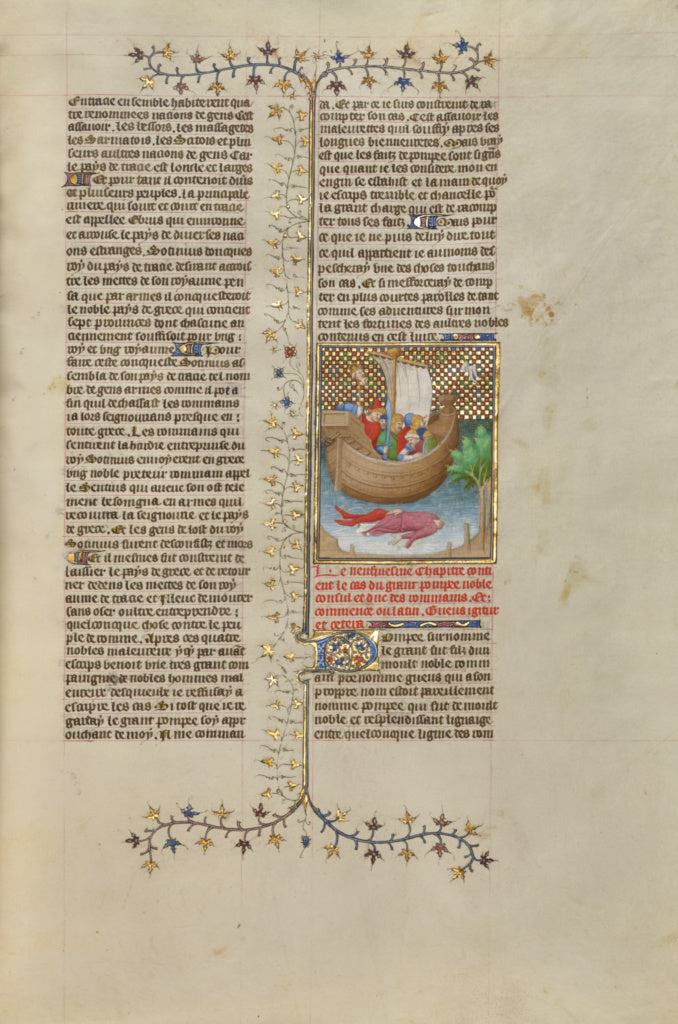 En trace en semble habiterent qua
tre renommees nacions de gens cest
assauoir. les bessors. les massagetes
les Sarmatois. les Scitois et plu
seurs aultres nacions de gens Car
le pays de trace est long et larges
Et pour tant il contenoit diuers
et pluseurs peuples. la principale
riuiere qui sourt et court en trace
est appellee Ebrus qui enuironne
et arrouse le pays de diuerses naci
ons estranges. Sotimus doncques
roy du pays de trace desirant accrois
tre les mettes de son royaume pen
sa que par armes il conquesteroit
le noble pays de grece qui contient
sept prouinces dont chascune an
ciennement souffisoit pour vng
roy et vng royaume Pour
faire ceste conqueste Sotimus as
sembla de son pays de trace tel nom
bre de gens armes comme il pot a
fin quil dechassast les rommains
ia lors seignourians presque en
toute grece. Les rommains qui
sentirent la hardie entreprinse du
roy Sotimus enuoyerent en grece
vng noble preteur rommain appel
le Sentius qui auecue son ost tele
ment besongna en armes quil
recouura la seignourie et le pays
de grece. Et les gens de lost du roy
Sotimus furent desconfis et mors
Et il mesmes fut constreint de
laissier le pays de grece et de retour
ner dedens les mettes de son roy
aume de trace et illeuc demourer
sans oser oultre entreprendre
quelconque chose contre le peu
ple de romme. Apres ces quatre
nobles maleureux qui par auant
escrips venoit vne tres grant com
paignie de nobles hommes mal
eureux desquelz ie reffusay a
escripre les cas Si tost que ie re
garday le grant pompee soy appr
ouchant de moy. Il me comman
da. Et par ce ie suis constreint de ra
compter son cas. Cest assauoir les
maleurettes quil souffry apres ses
longues bieneurettes. Mais vray
est que les faiz de pompee sont si grans
que quant ie les considere mon en
engin se esbahist et la main de quoy
ie escrips tremble et chancelle po
la grant charge qui est de racomp
ter tous ses faiz Mais pour
ce que ie ne puis de luy dire tout
ce quil appartient ie au moins des
pescheray vne des choses touchans
son cas. Et si mefforceray de comp
ter en plus courtes parolles de tant
comme ses aduentures surmon
tent les fortunes des autres nobles
contenus en cest liure
Le neufuiesme Chapitre conti
ent le cas du grant pompee noble
consul et duc des rommains. Et
commence ou latin. Gueus igitur
et cetera
Pompee surnomme
le grant fut filz dun
moult noble romm
ain prenomme gueus qui a son
propre nom estoit pareillement
nomme pompee qui fut de moult
noble et resplendissant lignaige
entre quelconque ligne des rom